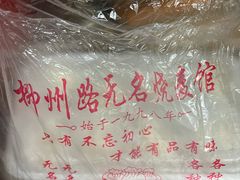 柳州路无名烧麦馆
始于一九九八年
只有不忘初心
才能有品有味
无名
各各